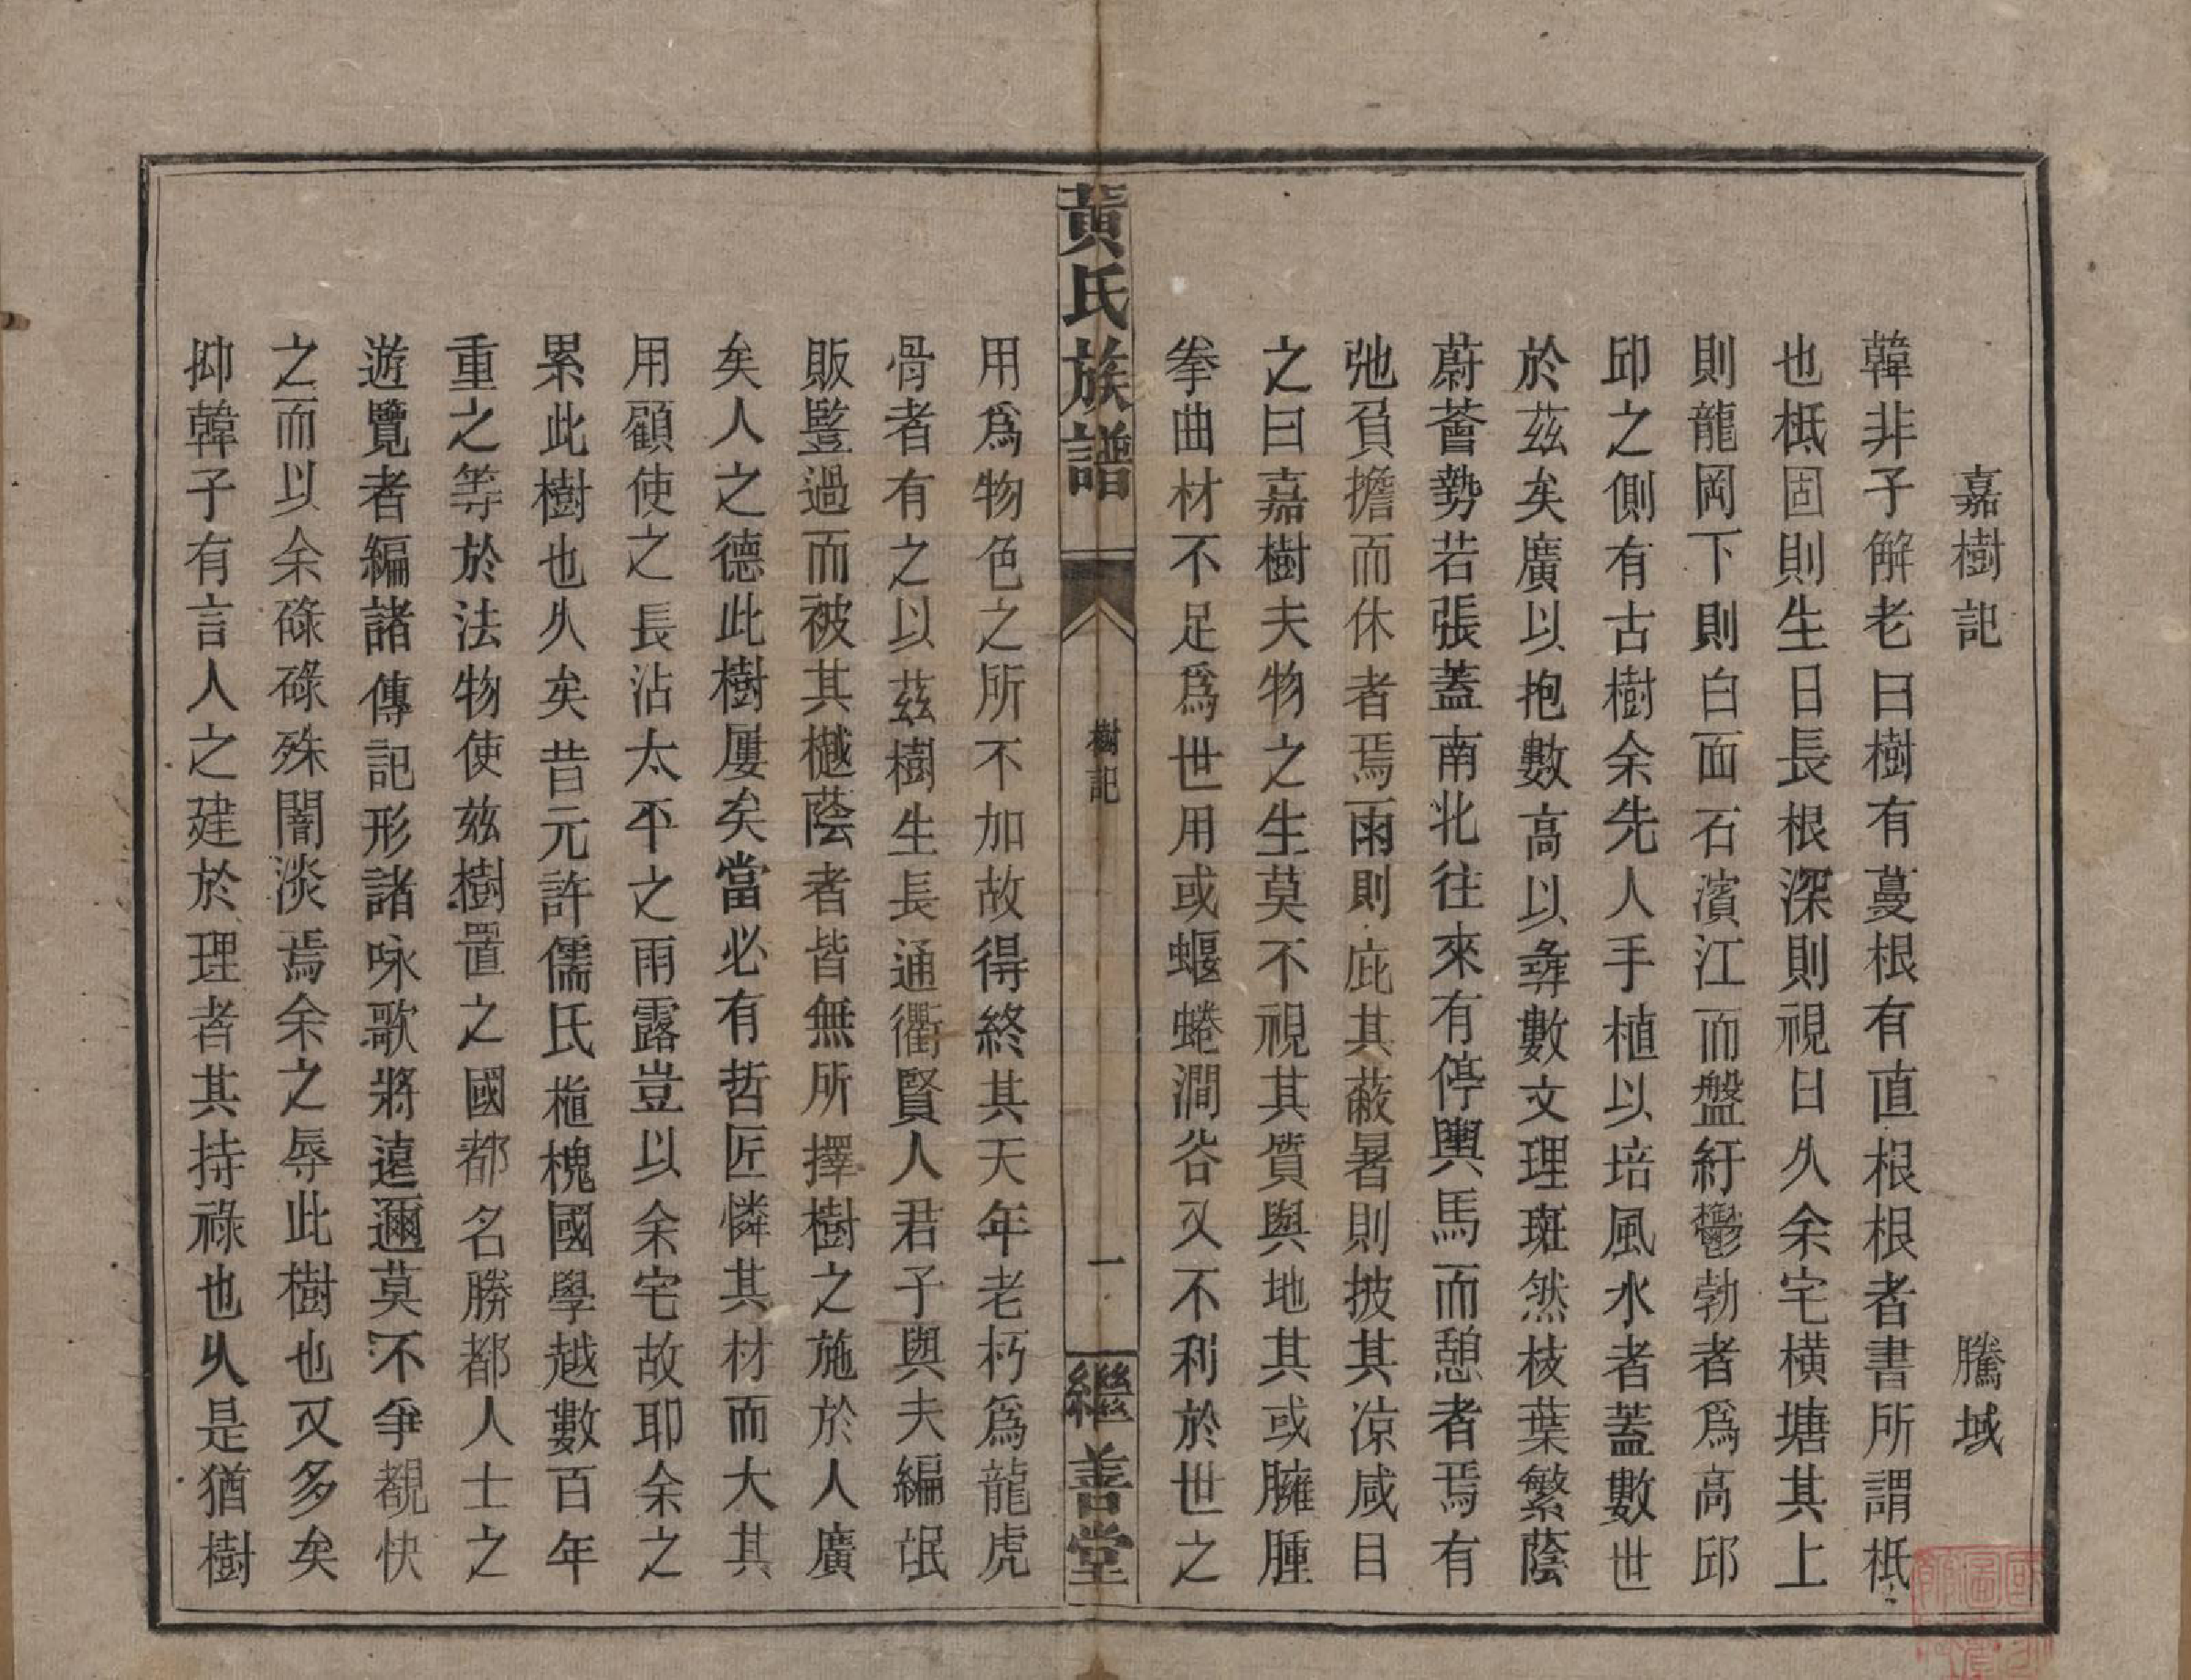 嘉樹記 騰域
韓非子解老曰樹有蔓根有直根根者書所謂柢
也柢固則生日長根深則視日久余宅橫塘其上
則龍岡下則白面石濱江而盤紆鬱勃者爲高邱
邱之側有古樹余先人手植以培風水者蓋數世
於茲矣廣以抱數高以尋數文理斑然枝葉繁蔭
蔚薈勢若張蓋南北往來有停輿馬而憩者焉有
弛負擔而休者焉雨則庇其蔽暑則披其凉咸目
之曰嘉樹夫物之生莫不視其質與地其或臃腫
拳曲材不足爲世用或蝘蜷澗谷又不利於世之
黃氏族譜 樹記 一 繼善堂
用爲物色之所不加故得終其天年老朽爲龍虎
骨者有之以茲樹生長通衢賢人君子與夫編氓
販豎過而被其樾蔭者皆無所擇樹之施於人廣
矣人之德此樹屢矣當必有哲匠憐其材而大其
用顧使之長沾太平之雨露豈以余宅故耶余之
累此樹也久矣昔元許儒氏植槐國學越數百年
重之等於法物使茲樹置之國都名勝都人士之
遊覽者編諸傳記形諸咏歌將遠邇莫不爭覩快
之而以余碌碌殊闇淡焉余之辱此樹也又多矣
抑韓子有言人之建於理者其持祿也久是猶樹